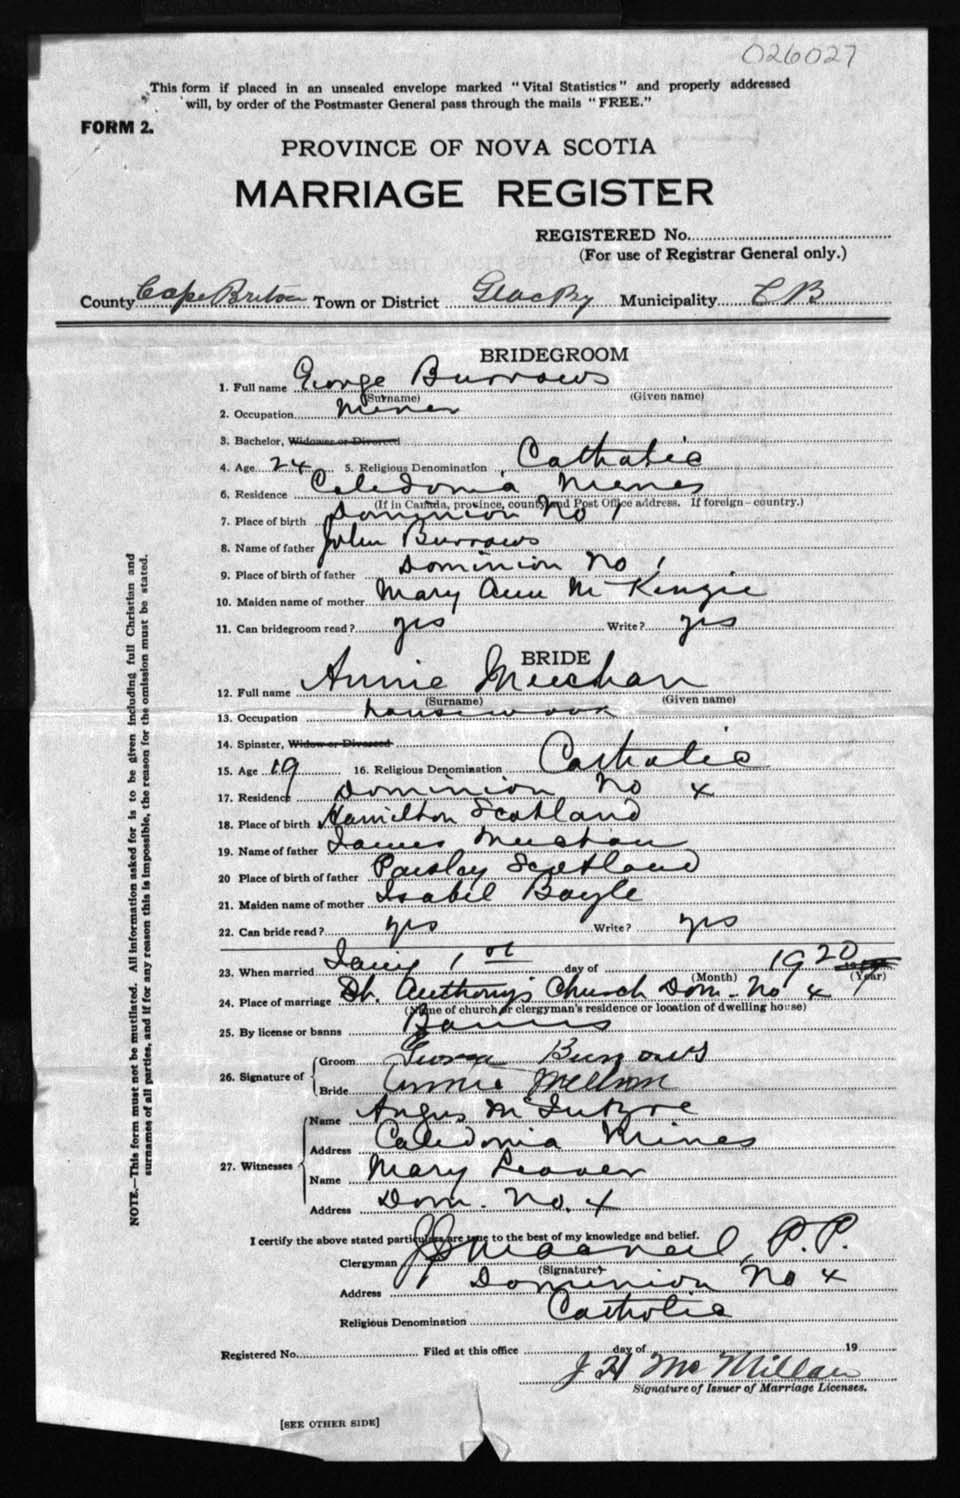 026027
This form if placed in an unsealed envelope marked "Vital Statistics" and properly addressed
will, by order of the Postmaster General pass through the mails "FREE."
FORM 2.
PROVINCE OF NOVA SCOTIA
MARRIAGE REGISTER
REGISTERED No.
(For use of Registrar General only.)
County Cape Breton Town or District Glace By Municipality C B
BRIDEGROOM
1. Full name George Burrows
(Surname) (Given name)
2. Occupation Miner
3. Bachelor, Widower or Divorced
4. Age 24 5. Religious Denomination Catholic
6. Residence Caledonia Mines
(If in Canada, province, county and Post Office address. If foreign—country.)
7. Place of birth Dominion No 1
8. Name of father John Burrows
9. Place of birth of father Dominion No 1
10. Maiden name of mother Mary Ann McKenzie
11. Can bridegroom read? yes Write? yes
BRIDE
12. Full name Annie Meechan
(Surname) (Given name)
13. Occupation housework
14. Spinster, Widow or Divorced
15. Age 19 16. Religious Denomination Catholic
17. Residence Dominion No 4
18. Place of birth Hamilton Scotland
19. Name of father James Meechan
20 Place of birth of father Paisley Scotland
21. Maiden name of mother Isabel Boyle
22. Can bride read? yes Write? yes
23. When married 1st day of 1920
(Month) (Year)
24. Place of marriage St. Anthony's Church Dom. No 4
(Name of church or clergyman's residence or location of dwelling house)
25. By license or banns Banns
26. Signature of Groom George Burrows
Bride Annie
27. Witnesses Name Angus McIntyre
Address Caledonia Mines
Name Mary Leaver
Address Dom. No. 4
I certify the above stated particulars are true to the best of my knowledge and belief.
Clergyman P.P.
(Signature)
Address Dominion No 4
Religious Denomination Catholic
Registered No. Filed at this office day of 19
J H McMillan
Signature of Issuer of Marriage Licenses.
[SEE OTHER SIDE]
NOTE.—This form must not be mutilated. All information asked for is to be given including full Christian and
surnames of all parties, and if for any reason this is impossible, the reason for the omission must be stated.